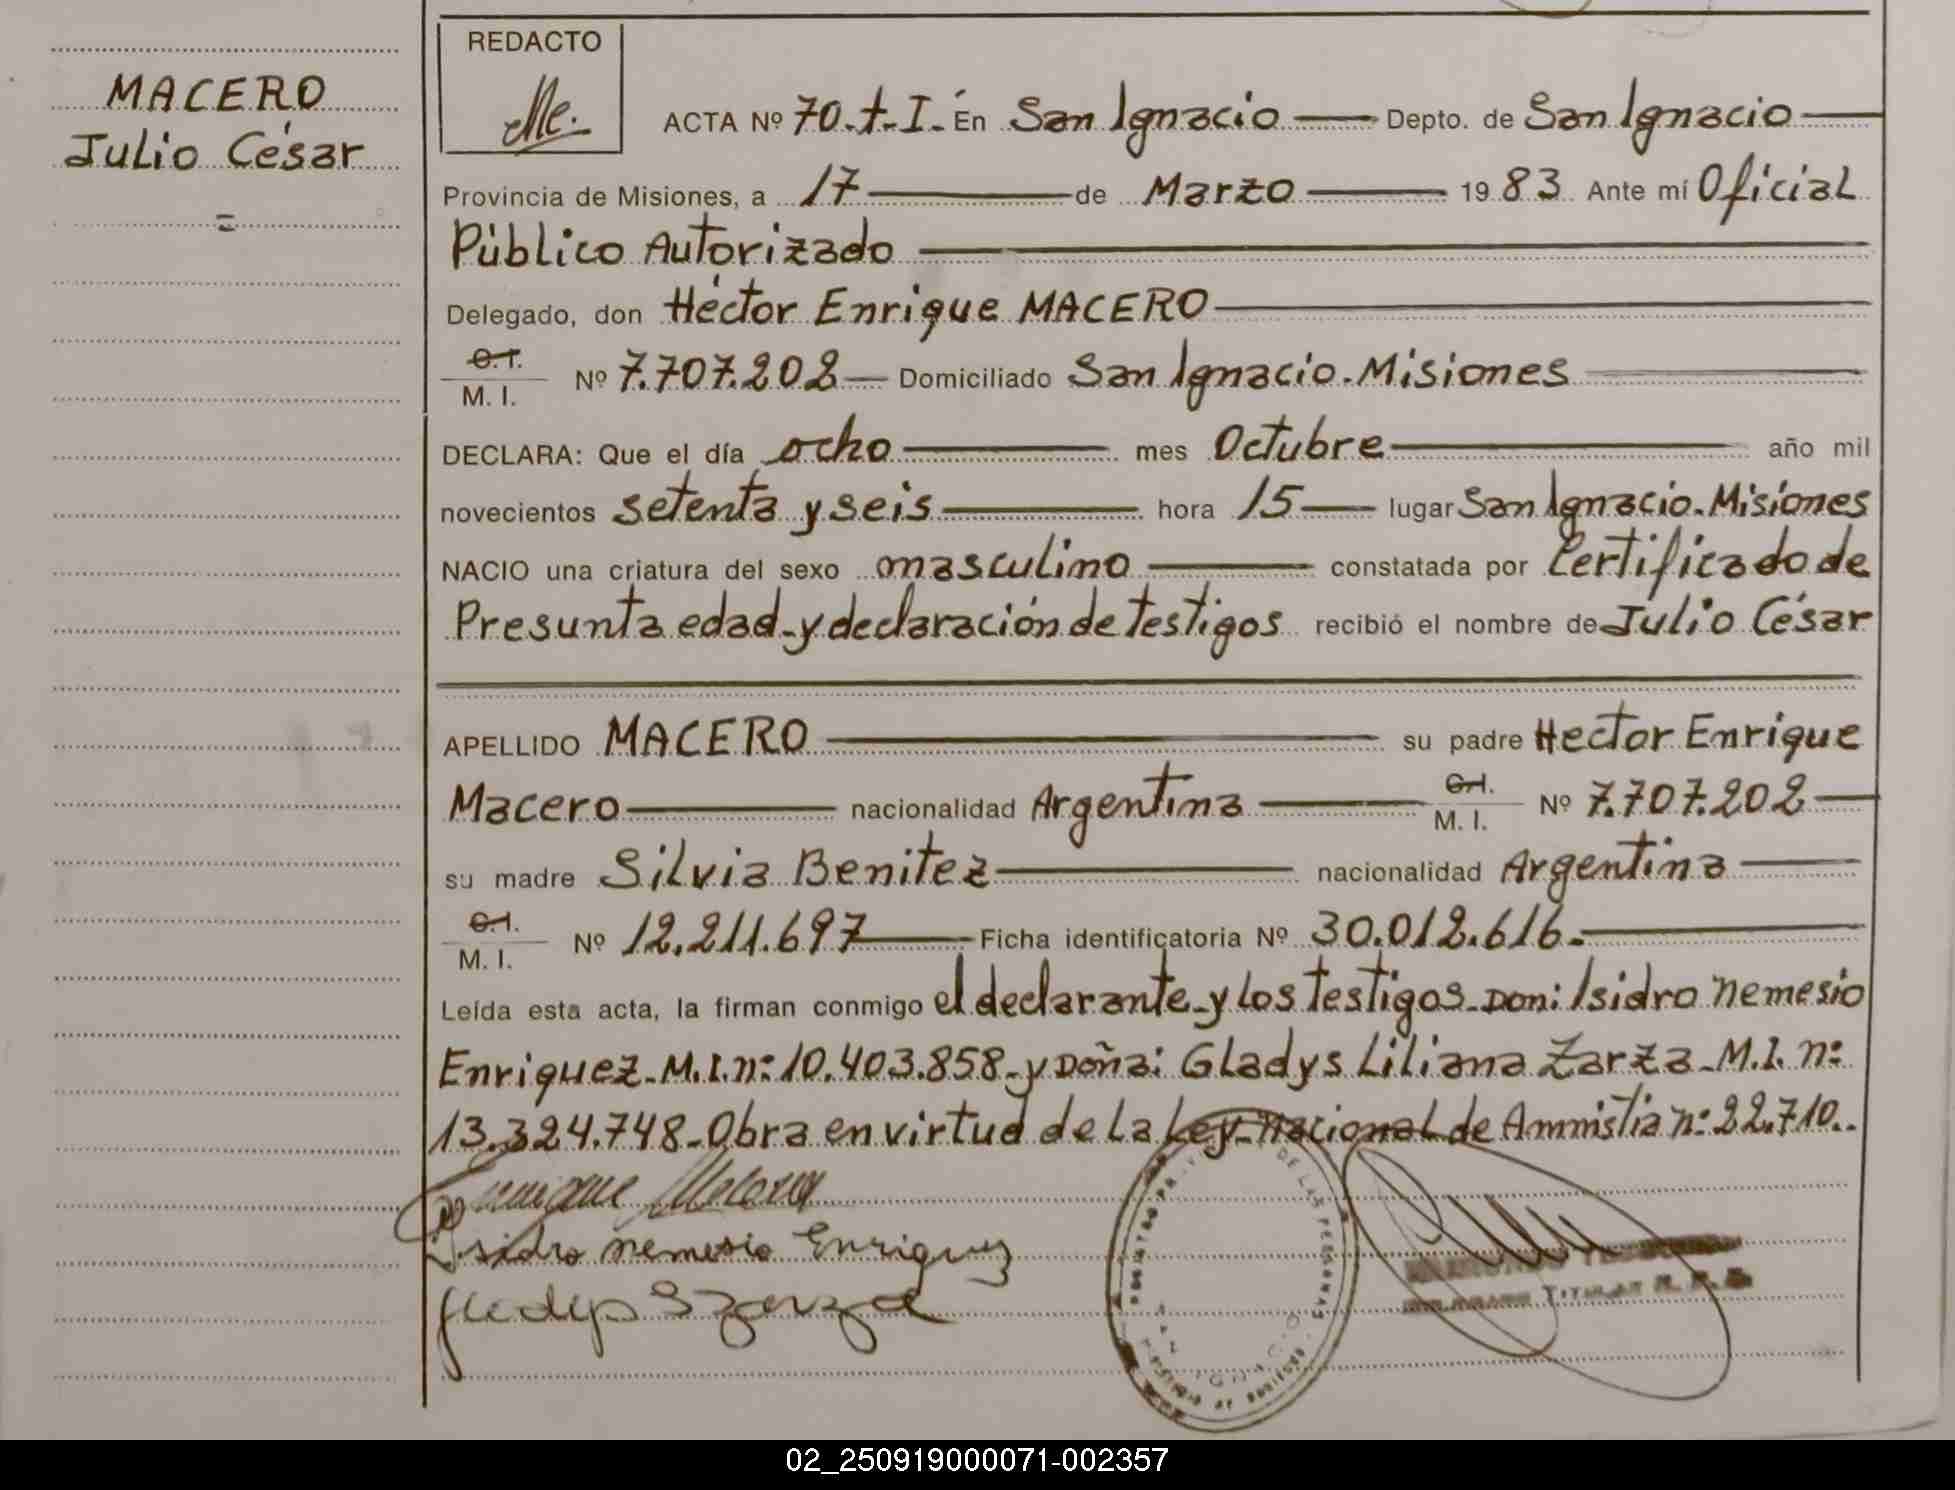 MACERO
Julio César
=
REDACTO
ACTA Nº 70.t.I. En San Ignacio Depto. de San Ignacio
Provincia de Misiones, a 17 de Marzo 1983 Ante mí Oficial
Público Autorizado
Delegado, don Héctor Enrique MACERO
C.I. M. I. Nº 7.707.202 Domiciliado San Ignacio. Misiones
DECLARA: Que el día ocho mes Octubre año mil
novecientos setenta y seis hora 15 lugar San Ignacio. Misiones
NACIO una criatura del sexo masculino constatada por Certificado de
Presunta edad-y declaración de testigos recibió el nombre de Julio César
APELLIDO MACERO su padre Hector Enrique
Macero nacionalidad Argentina C.I. M. I. Nº 7.707.202
su madre Silvia Benitez nacionalidad Argentina
C.I. M. I. Nº 12.211.697 Ficha identificatoria Nº 30.012.616.
Leída esta acta, la firman conmigo el declarante-y los testigos-Don: Isidro Nemesio
Enriquez-M.I.n: 10.403.858-y Doña: Gladys Liliana Zarza-M.I. n:
13.324.748-Obra en virtud de la Ley-Nacional de Amnistia n: 22.710..
Isidro Nemesio Enriquez
REGISTRO DE LAS PERSONAS
SAN IGNACIO
TITULAR R. P. S.
02_250919000071-002357